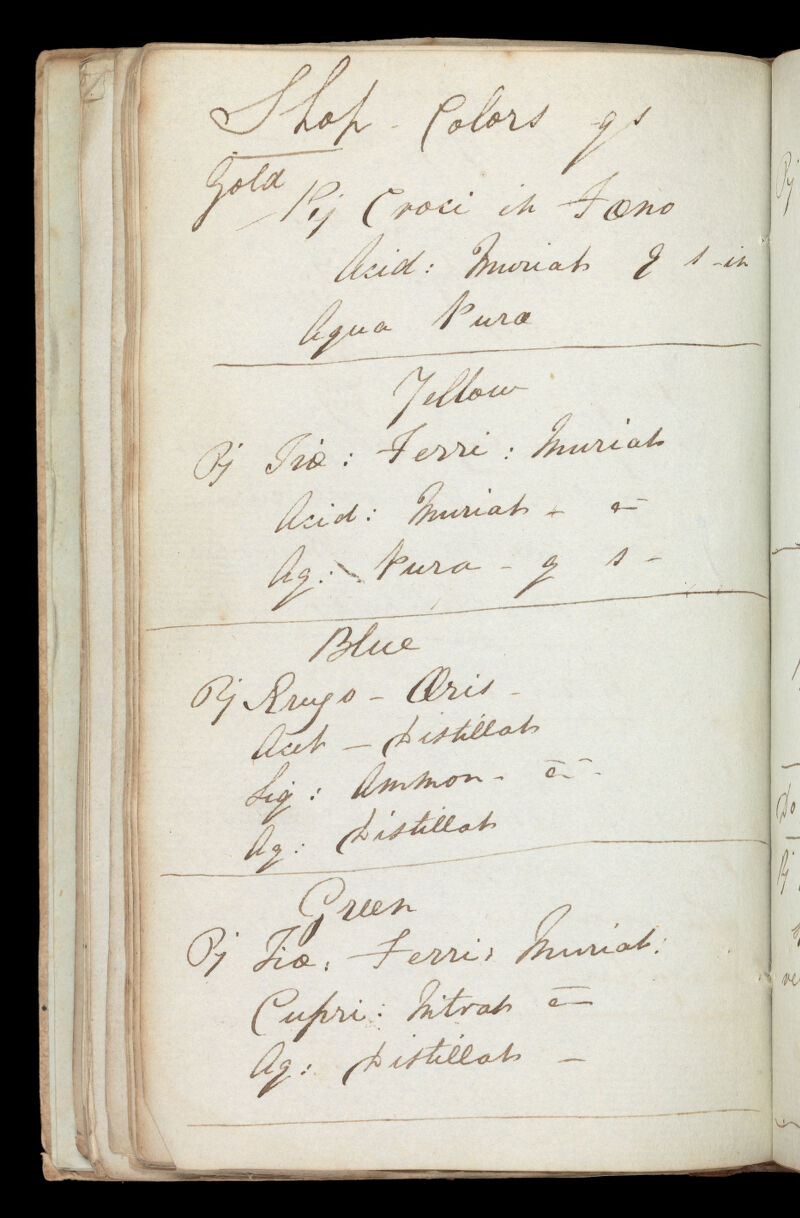 Shop - Colors qs
Gold
℞ Croci in Fæno
Acid: Muriat q s - in
Aqua Pura
Yellow
℞ Tiæ: Ferri: Muriat
Acid: Muriat - a
Aq: Pura - q s -
Blue
℞ Ærugo - Æris -
Acet - Distillat
Liq: Ammon - a -
Aq: Distillat
Green
℞ Tiæ: Ferri: Muriat:
Cupri: Nitrat a
Aq: Distillat -
Do
℞